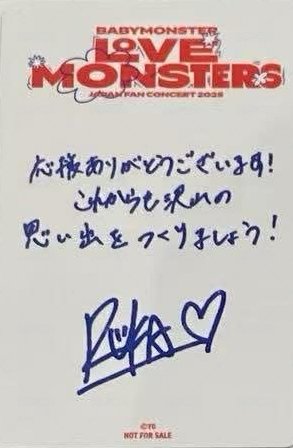 BABYMONSTER
LOVE
MONSTERS
JAPAN FAN CONCERT 2025
応様ありがとうございます!
これからも沢山の
思い出をつくりましょう!
RUKA♡
©YG
NOT FOR SALE